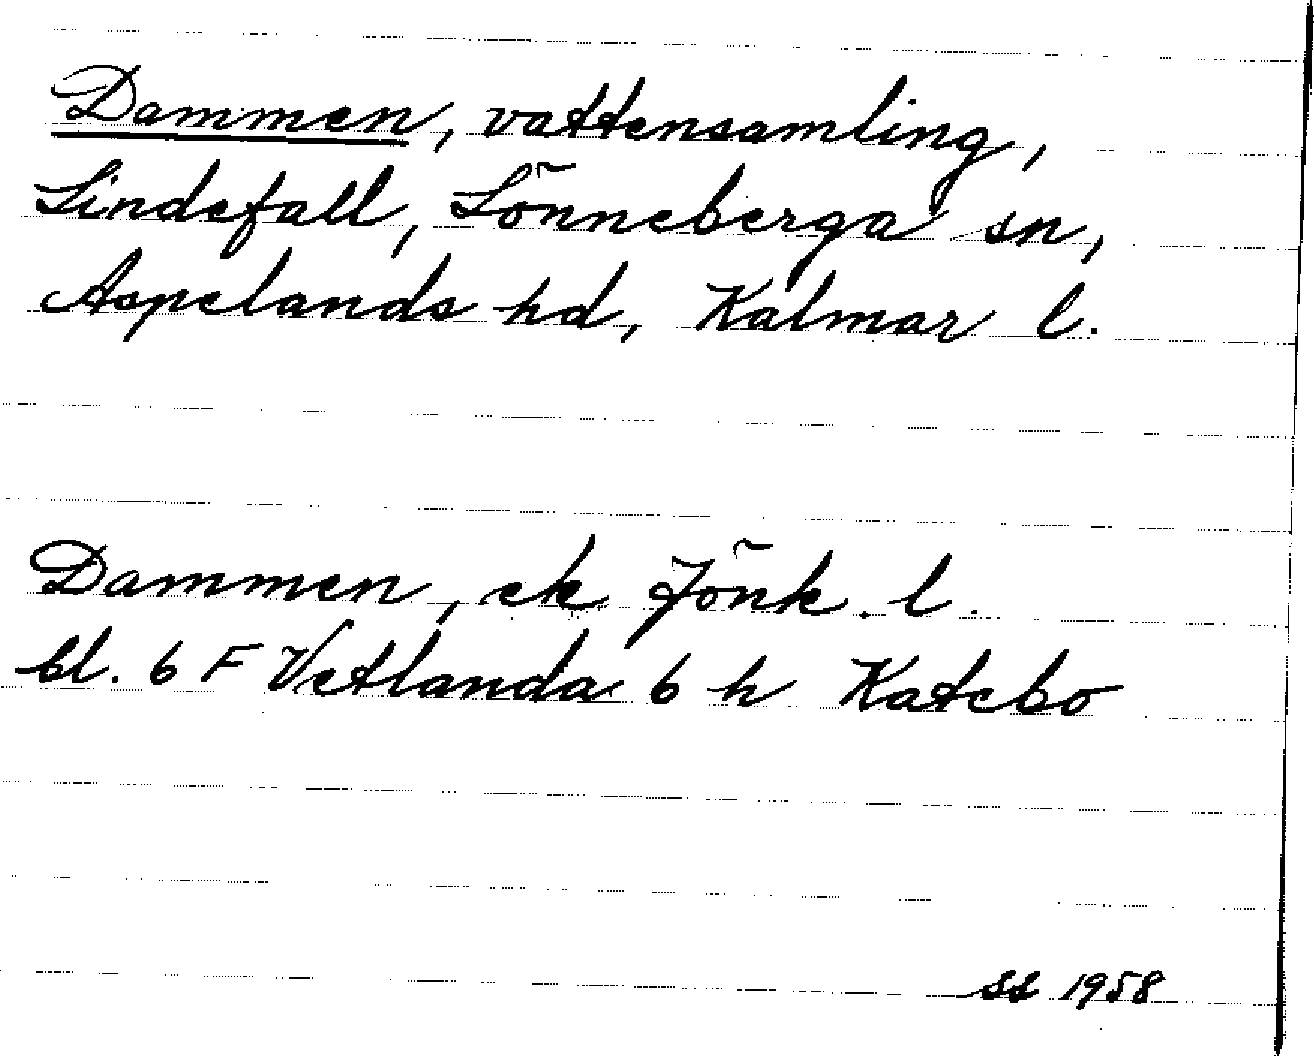 Dammen, vattensamling,
Lindefall, Lönneberga sn,
Aspelands hd, Kalmar l.
Dammen, ek Jönk. l.
bl. 6 F Vetlanda 6 h Katebo
SS 1958